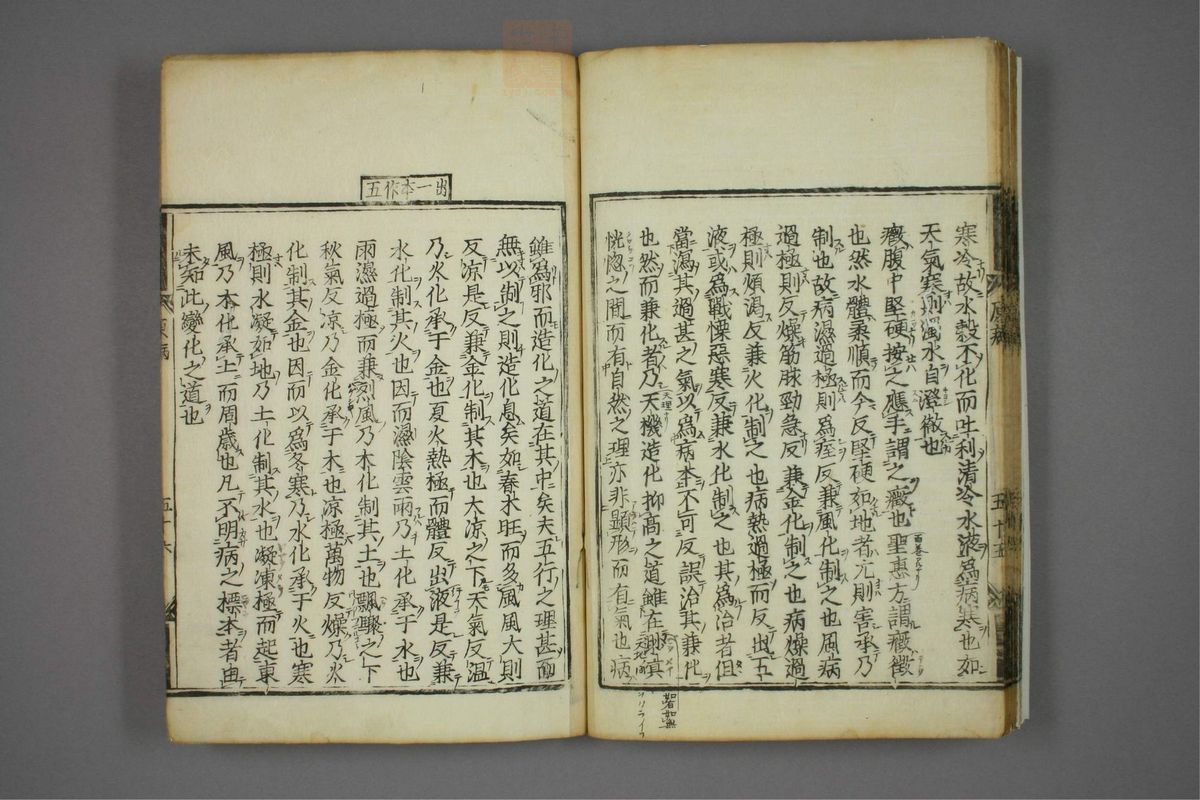 寒冷故水穀不化而吐利清冷水液為病寒也如
天氣寒則濁水自澄徹也
癥腹中堅硬按之應手謂之癥也聖惠方謂癥徴
也然水體柔順而今反堅硬如地者亢則害承乃
制也故病濕過極則為痓反兼風化制之也風病
過極則反燥筋脉勁急反兼金化制之也病燥過
極則煩渴反兼火化制之也病熱過極而反出五
液或為戰慄惡寒反兼水化制之也其為治者但
當瀉其過甚之氣以為病本不可反誤治其兼化
也然而兼化者乃天機造化抑高之道雖在渺冥
恍惚之間而有自然之理亦非顯形而有氣也病
五十五
出一本作五
雖為邪而造化之道在其中矣夫五行之理甚而
無以制之則造化息矣如春木旺而多風風大則
反凉是反兼金化制其木也大凉之下天氣反温
乃火化承于金也夏火熱極而體反出液是反兼
水化制其火也因而濕陰雲雨乃土化承于水也
雨濕過極而兼烈風乃木化制其土也飄驟之下
秋氣反凉乃金化承于木也凉極萬物反燥乃火
化制其金也因而以為冬寒乃水化承于火也寒
極則水凝如地乃土化制其水也凝凍極而起東
風乃木化承土而周歳也凡不明病之標本者由
未知此變化之道也